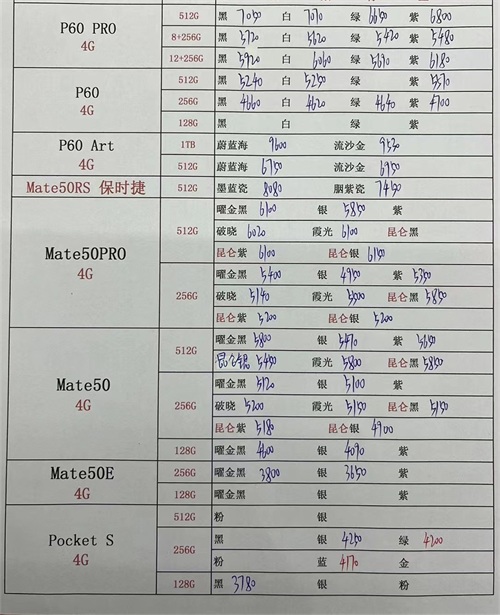 P60 PRO 4G 512G 黑 7050 白 7070 绿 6650 紫 6800
8+256G 黑 5720 白 5620 绿 5420 紫 5480
12+256G 黑 5920 白 6060 绿 5670 紫 6180
P60 4G 512G 黑 5240 白 5250 绿 紫 5570
256G 黑 4660 白 4620 绿 4640 紫 4700
128G 黑 白 绿 紫
P60 Art 4G 1TB 蔚蓝海 9600 流沙金 9530
512G 蔚蓝海 6750 流沙金 6950
Mate50RS 保时捷 512G 墨蓝瓷 8080 胭紫瓷 7450
Mate50PRO 4G 512G 曜金黑 6100 银 5850 紫
破晓 6020 霞光 6100 昆仑黑
昆仑紫 6100 昆仑银 6150
256G 曜金黑 5400 银 4950 紫 5350
破晓 5140 霞光 5000 昆仑黑 5850
昆仑紫 5200 昆仑银 5200
Mate50 4G 512G 曜金黑 5800 银 5470 紫 5650
昆仑银 5450 霞光 5800 昆仑黑 5850
256G 曜金黑 5120 银 5100 紫
破晓 5200 霞光 5150 昆仑黑 5150
昆仑紫 5180 昆仑银 4900
128G 曜金黑 4600 银 4090 紫
Mate50E 4G 256G 曜金黑 3800 银 3650 紫
128G 曜金黑 银 紫
Pocket S 4G 512G 粉 银
256G 黑 银 4250 绿 4200
粉 蓝 4170 金
128G 黑 3780 银 粉